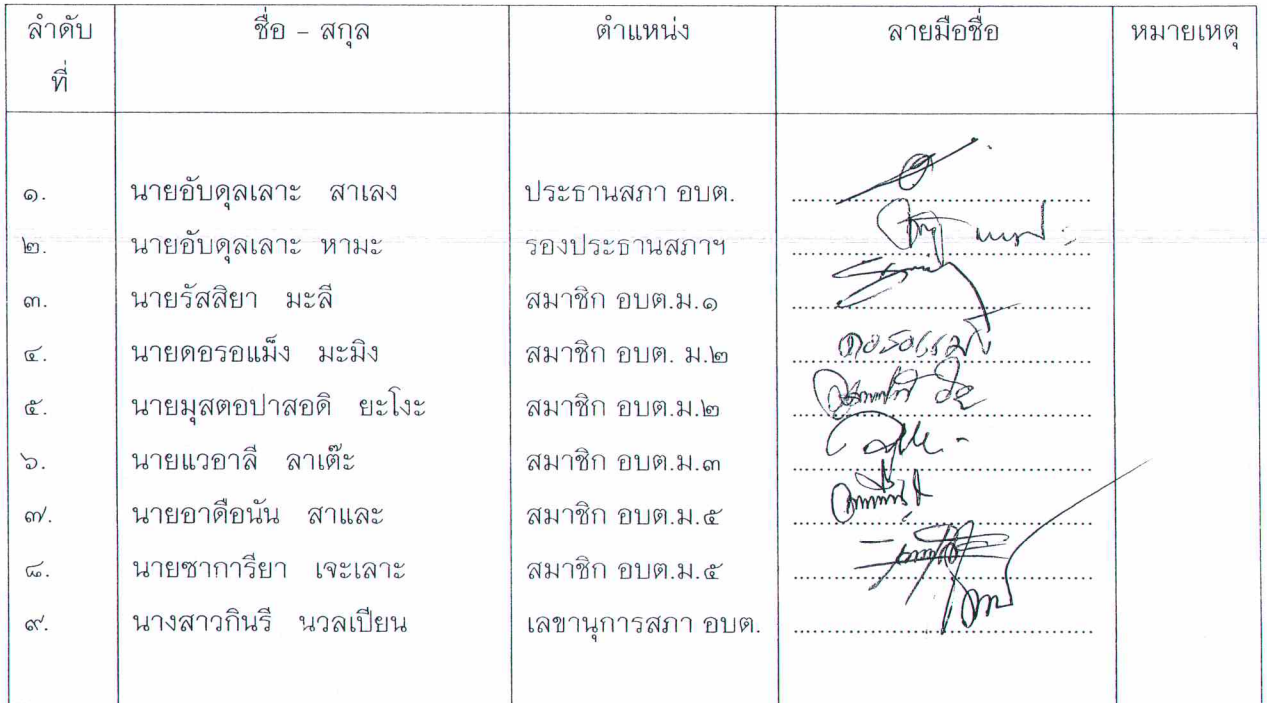 ลำดับที่ ชื่อ - สกุล ตำแหน่ง ลายมือชื่อ หมายเหตุ
๑. นายอับดุลเลาะ สาเลง ประธานสภา อบต.
๒. นายอับดุลเลาะ หามะ รองประธานสภาฯ
๓. นายรัสสิยา มะลี สมาชิก อบต.ม.๑
๔. นายดอรอแม็ง มะมิง สมาชิก อบต. ม.๒ ดอรอแม็ง
๕. นายมุสตอปาสอดิ ยะโงะ สมาชิก อบต.ม.๒
๖. นายแวอาลี ลาเต๊ะ สมาชิก อบต.ม.๓
๗. นายอาดือนัน สาและ สมาชิก อบต.ม.๕
๘. นายซาการียา เจะเลาะ สมาชิก อบต.ม.๕
๙. นางสาวกินรี นวลเปียน เลขานุการสภา อบต.